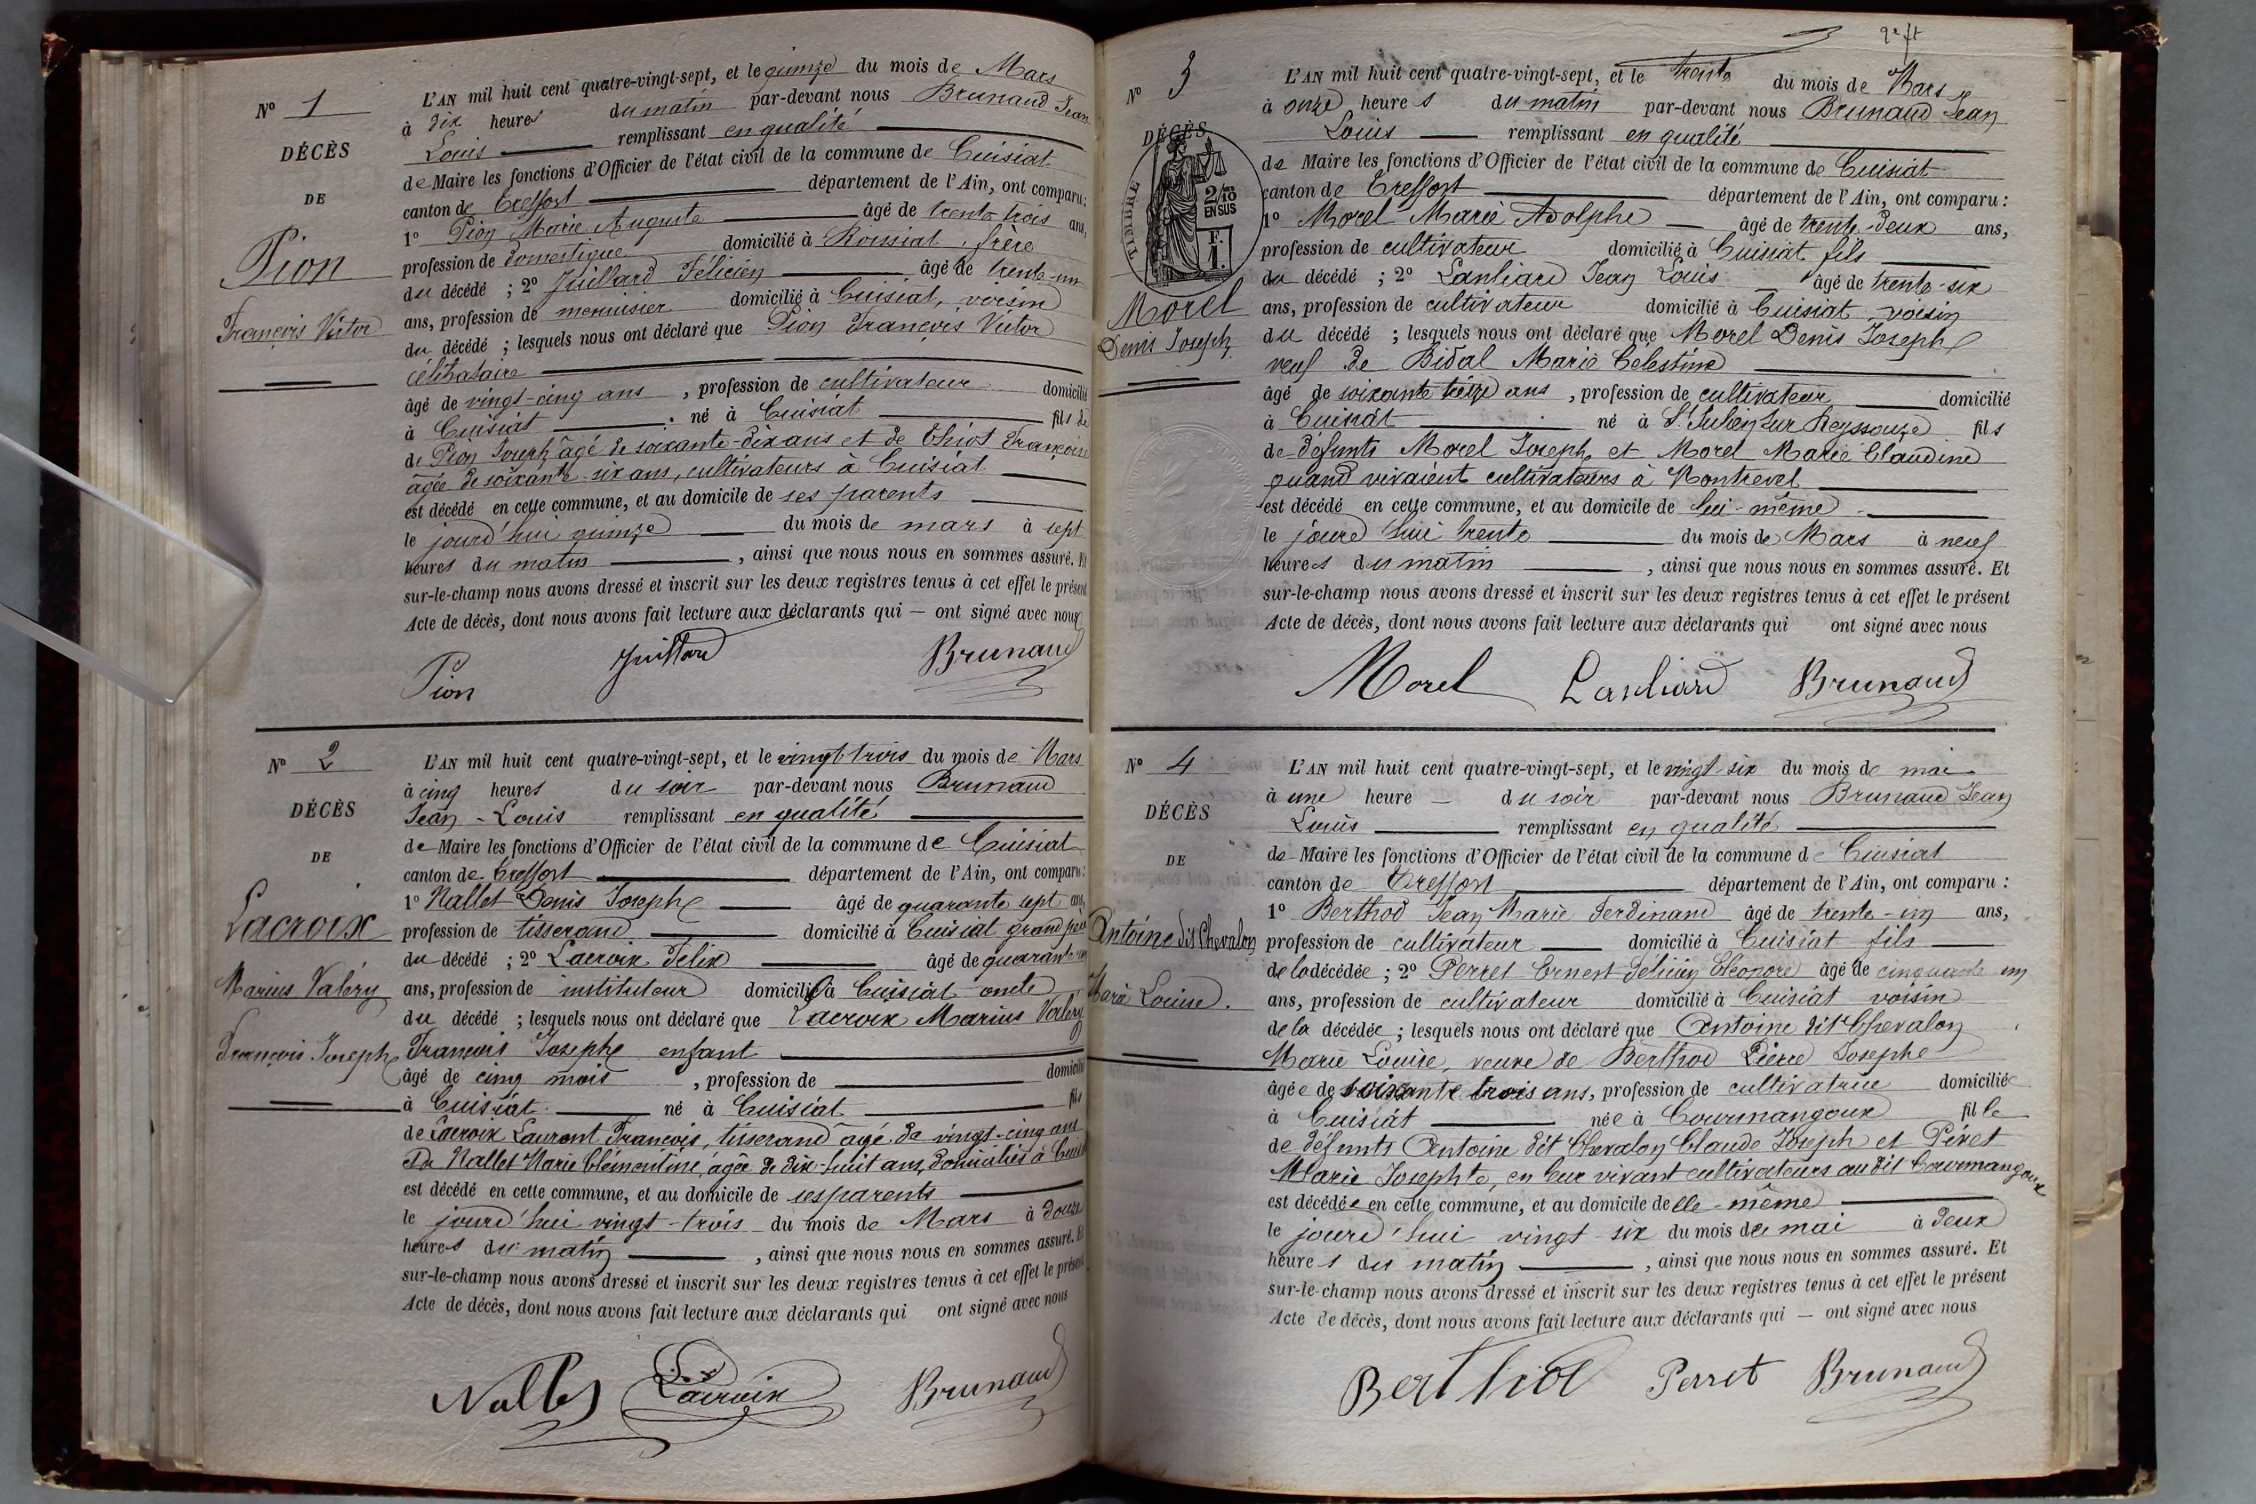 Nº 1
DÉCÈS
DE
Pion
François Victor
L'AN mil huit cent quatre-vingt-sept, et le quinze du mois de Mars
à dix heures du matin par-devant nous Brunaud Jean
Louis remplissant en qualité
de Maire les fonctions d'Officier de l'état civil de la commune de Cuisiat
canton de Treffort département de l'Ain, ont comparu :
1º Pion Marie Auguste âgé de trente trois ans,
profession de domestique domicilié à Roissiat, frère
du décédé ; 2º Juillard Félicien âgé de trente-un
ans, profession de menuisier domicilié à Cuisiat, voisin
du décédé ; lesquels nous ont déclaré que Pion François Victor
célibataire
âgé de vingt-cinq ans, profession de cultivateur domicilié
à Cuisiat né à Cuisiat fils de
de Pion Joseph âgé de soixante-dix ans et de Thiot Françoise
âgée de soixante-six ans, cultivateurs à Cuisiat
est décédé en cette commune, et au domicile de ses parents
le jourd'hui quinze du mois de mars à sept
heures du matin, ainsi que nous nous en sommes assuré. Et
sur-le-champ nous avons dressé et inscrit sur les deux registres tenus à cet effet le présent
Acte de décès, dont nous avons fait lecture aux déclarants qui — ont signé avec nous
Pion Juillard Brunaud
Nº 2
DÉCÈS
DE
Lacroix
Marius Valéry
François Joseph
L'AN mil huit cent quatre-vingt-sept, et le vingt trois du mois de Mars
à cinq heures du soir par-devant nous Brunaud
Jean-Louis remplissant en qualité
de Maire les fonctions d'Officier de l'état civil de la commune de Cuisiat
canton de Treffort département de l'Ain, ont comparu :
1º Nallet Denis Joseph âgé de quarante sept ans,
profession de tisserand domicilié à Cuisiat grand père
du décédé ; 2º Lacroix Félix âgé de quarante
ans, profession de instituteur domicilié à Cuisiat oncle
du décédé ; lesquels nous ont déclaré que Lacroix Marius Valéry
François Josephe enfant
âgé de cinq mois, profession de domicilié
à Cuisiat né à Cuisiat fils
de Lacroix Laurent François, tisserand âgé de vingt-cinq ans
et de Nallet Marie Clémentine, âgée de dix-huit ans, domiciliés à Cuisiat
est décédé en cette commune, et au domicile de ses parents
le jourd'hui vingt-trois du mois de Mars à douze
heures du matin, ainsi que nous nous en sommes assuré. Et
sur-le-champ nous avons dressé et inscrit sur les deux registres tenus à cet effet le présent
Acte de décès, dont nous avons fait lecture aux déclarants qui ont signé avec nous
Nallet Lacroix Brunaud
Nº 3
DÉCÈS
TIMBRE
2/10
EN SUS
F.
1.
Morel
Denis Joseph
L'AN mil huit cent quatre-vingt-sept, et le trente du mois de Mars
à onze heures du matin par-devant nous Brunaud Jean
Louis remplissant en qualité
de Maire les fonctions d'Officier de l'état civil de la commune de Cuisiat
canton de Treffort département de l'Ain, ont comparu :
1º Morel Marie Adolphe âgé de trente-deux ans,
profession de cultivateur domicilié à Cuisiat fils
du décédé ; 2º Lanliard Jean Louis âgé de trente-six
ans, profession de cultivateur domicilié à Cuisiat, voisin
du décédé ; lesquels nous ont déclaré que Morel Denis Joseph
veuf de Bidal Marie Celestine
âgé de soixante treize ans, profession de cultivateur domicilié
à Cuisiat né à St Julien sur Reyssouze fils
de défunts Morel Joseph et Morel Marie Claudine
quand vivaient cultivateurs à Montrevel
est décédé en cette commune, et au domicile de lui-même
le jourd'hui trente du mois de Mars à neuf
heures du matin, ainsi que nous nous en sommes assuré. Et
sur-le-champ nous avons dressé et inscrit sur les deux registres tenus à cet effet le présent
Acte de décès, dont nous avons fait lecture aux déclarants qui ont signé avec nous
Morel Lanliard Brunaud
Nº 4
DÉCÈS
DE
Antoine dit Chevalon
Marie Louise.
L'AN mil huit cent quatre-vingt-sept, et le vingt-six du mois de mai
à une heure du soir par-devant nous Brunaud Jean
Louis remplissant en qualité
de Maire les fonctions d'Officier de l'état civil de la commune de Cuisiat
canton de Treffort département de l'Ain, ont comparu :
1º Berthod Jean Marie Ferdinand âgé de trente-un ans,
profession de cultivateur domicilié à Cuisiat fils
de la décédée ; 2º Perret Ernest Félicien Eléonore âgé de cinquante un
ans, profession de cultivateur domicilié à Cuisiat voisin
de la décédée ; lesquels nous ont déclaré que Antoine dit Chevalon
Marie Louise, veuve de Berthod Pierre Josephe
âgée de soixante trois ans, profession de cultivatrice domiciliée
à Cuisiat née à Courmangoux fille
de défunts Antoine dit Chevalon Claude Joseph et Péret
Marie Josephte, en leur vivant cultivateurs au dit Courmangoux
est décédée en cette commune, et au domicile de elle-même
le jourd'hui vingt six du mois de mai à deux
heures du matin, ainsi que nous nous en sommes assuré. Et
sur-le-champ nous avons dressé et inscrit sur les deux registres tenus à cet effet le présent
Acte de décès, dont nous avons fait lecture aux déclarants qui — ont signé avec nous
Berthod Perret Brunaud